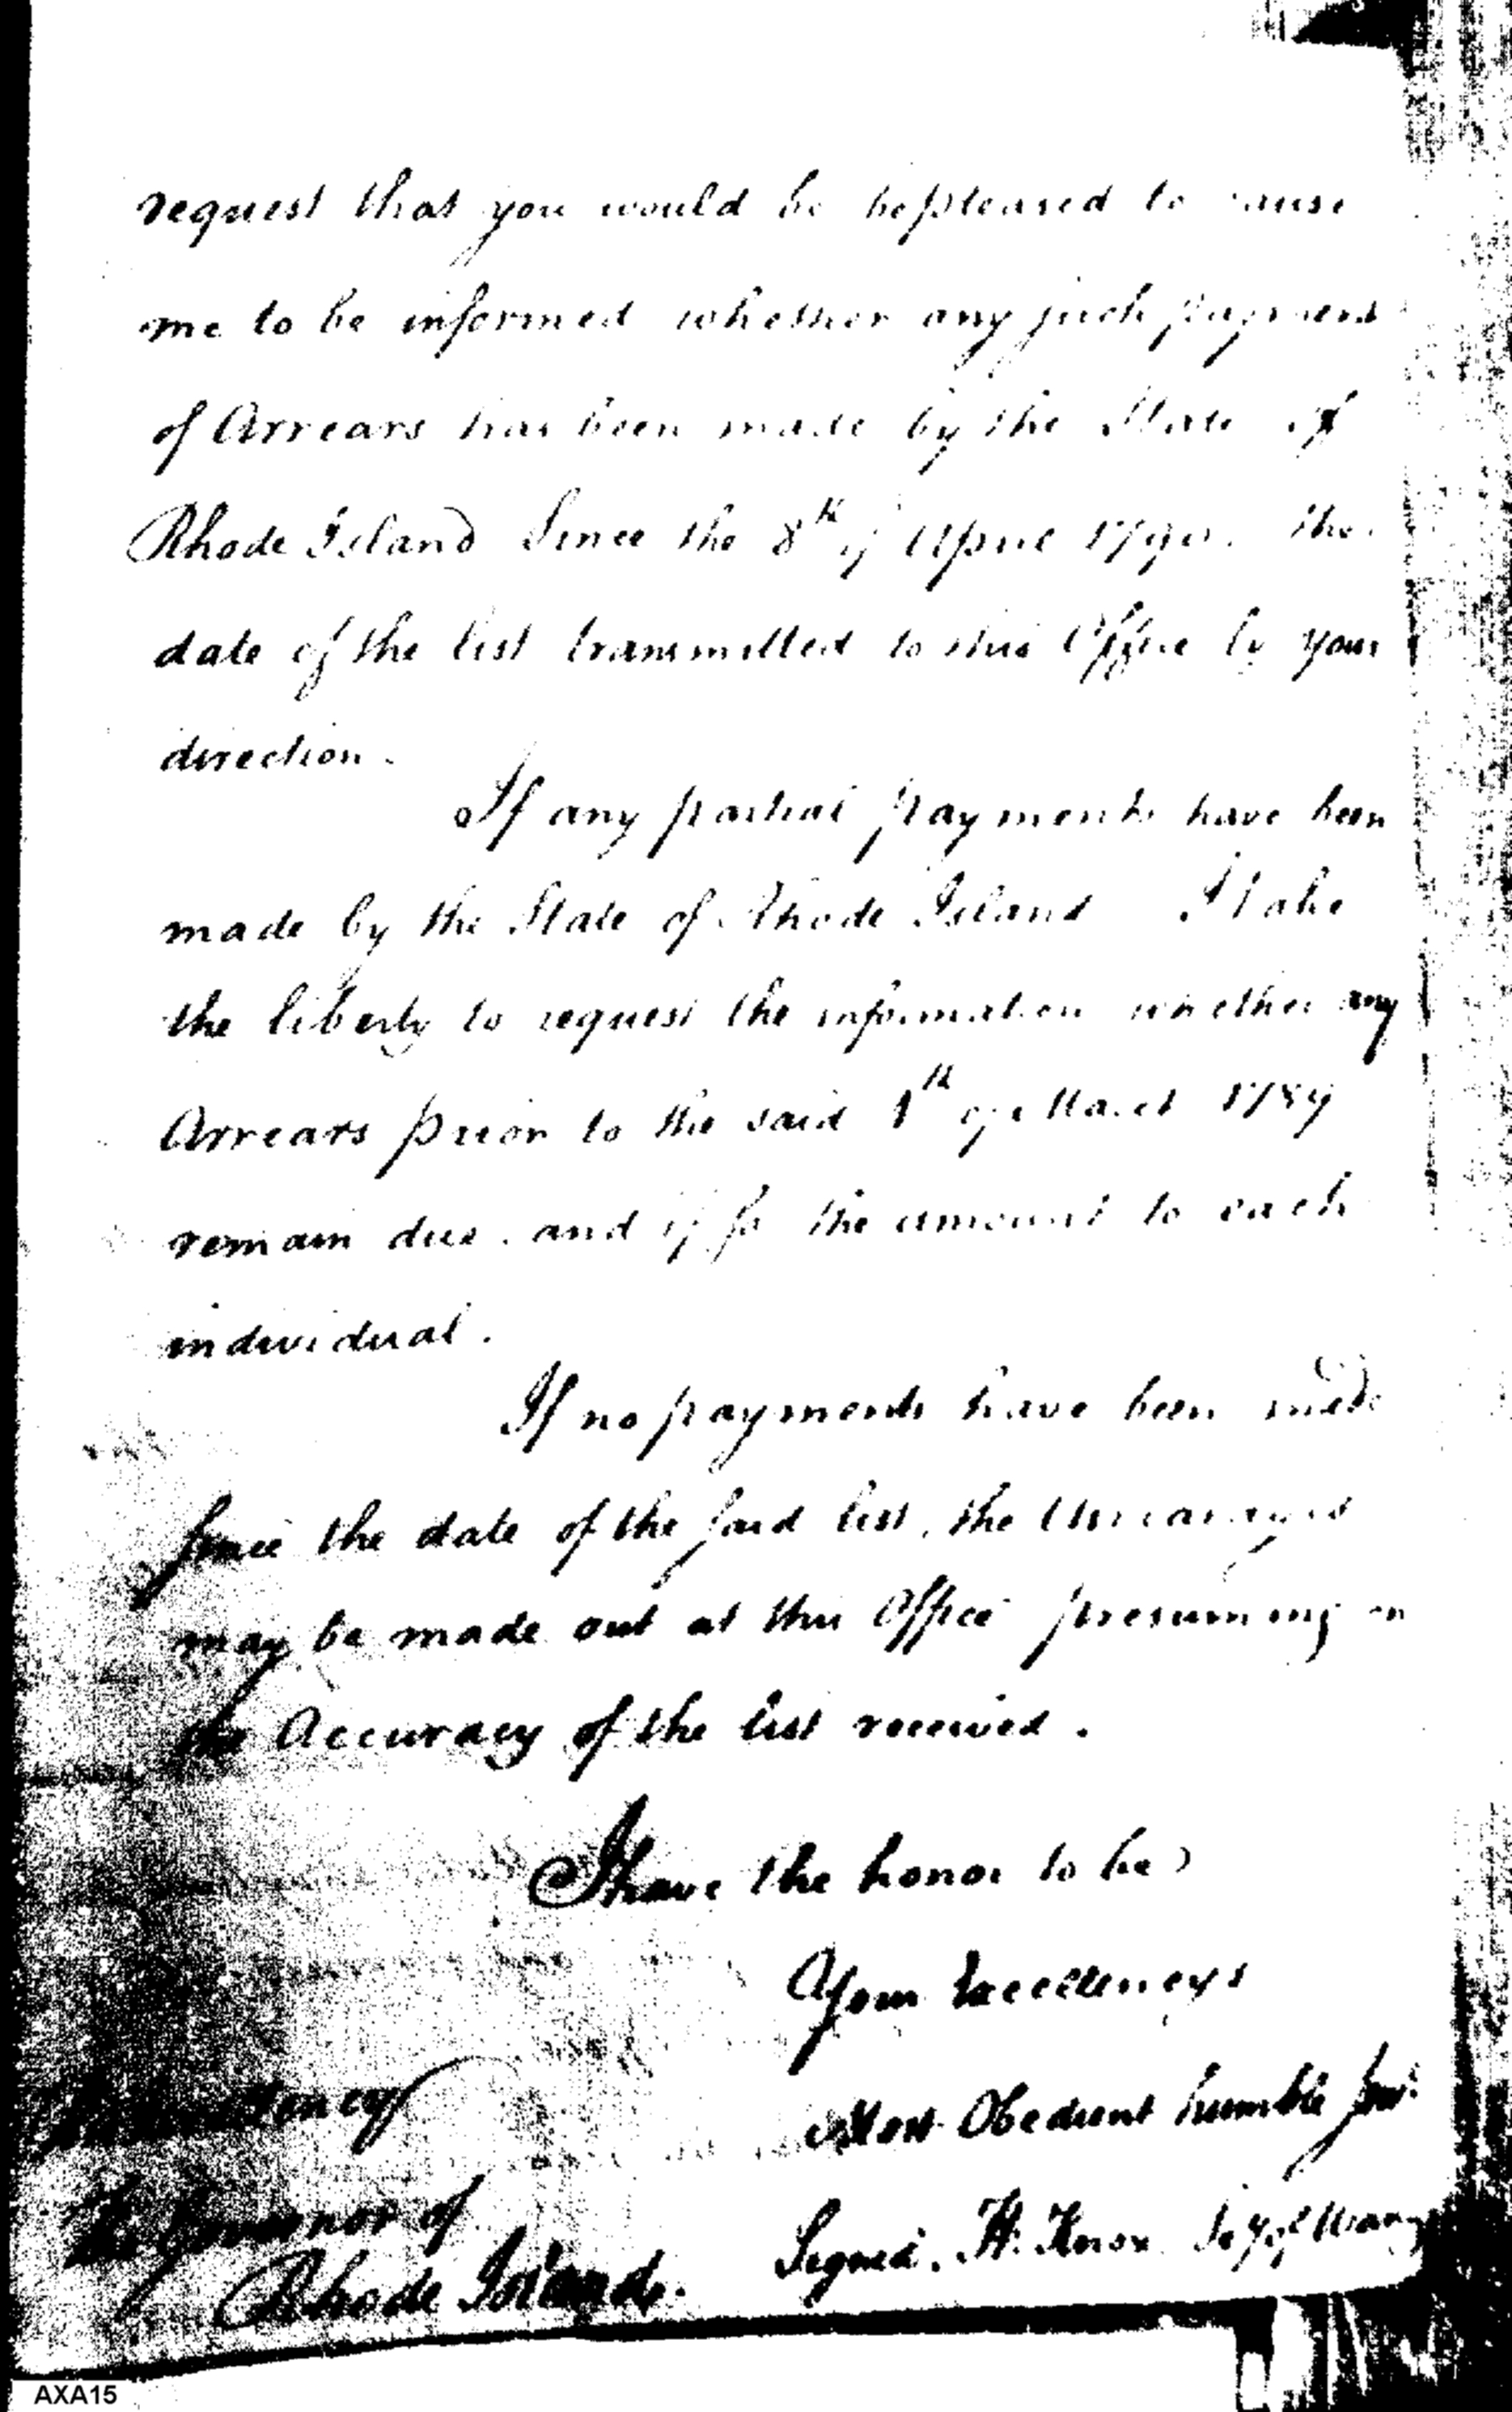 request that you would be be pleased to cause
me to be informed whether any such payment
of Arrears has been made by the State of
Rhode Island Since the 8th of April 1790. the
date of the list transmitted to this Office by your
direction.
If any partial payments have been
made by the State of Rhode Island I take
the liberty to request the information whether any
Arrears prior to the said 4th of March 1789
remain due. and if so the amount to each
individual.
If no payments have been made
since the date of the said list, the Arrearages
may be made out at this Office presuming on
the Accuracy of the list received.
I have the honor to be
Your Excellencys
Most Obedient humble Servt
Signed. H. Knox Secy of War
Excellency
The Governor of
Rhode Island.
AXA15